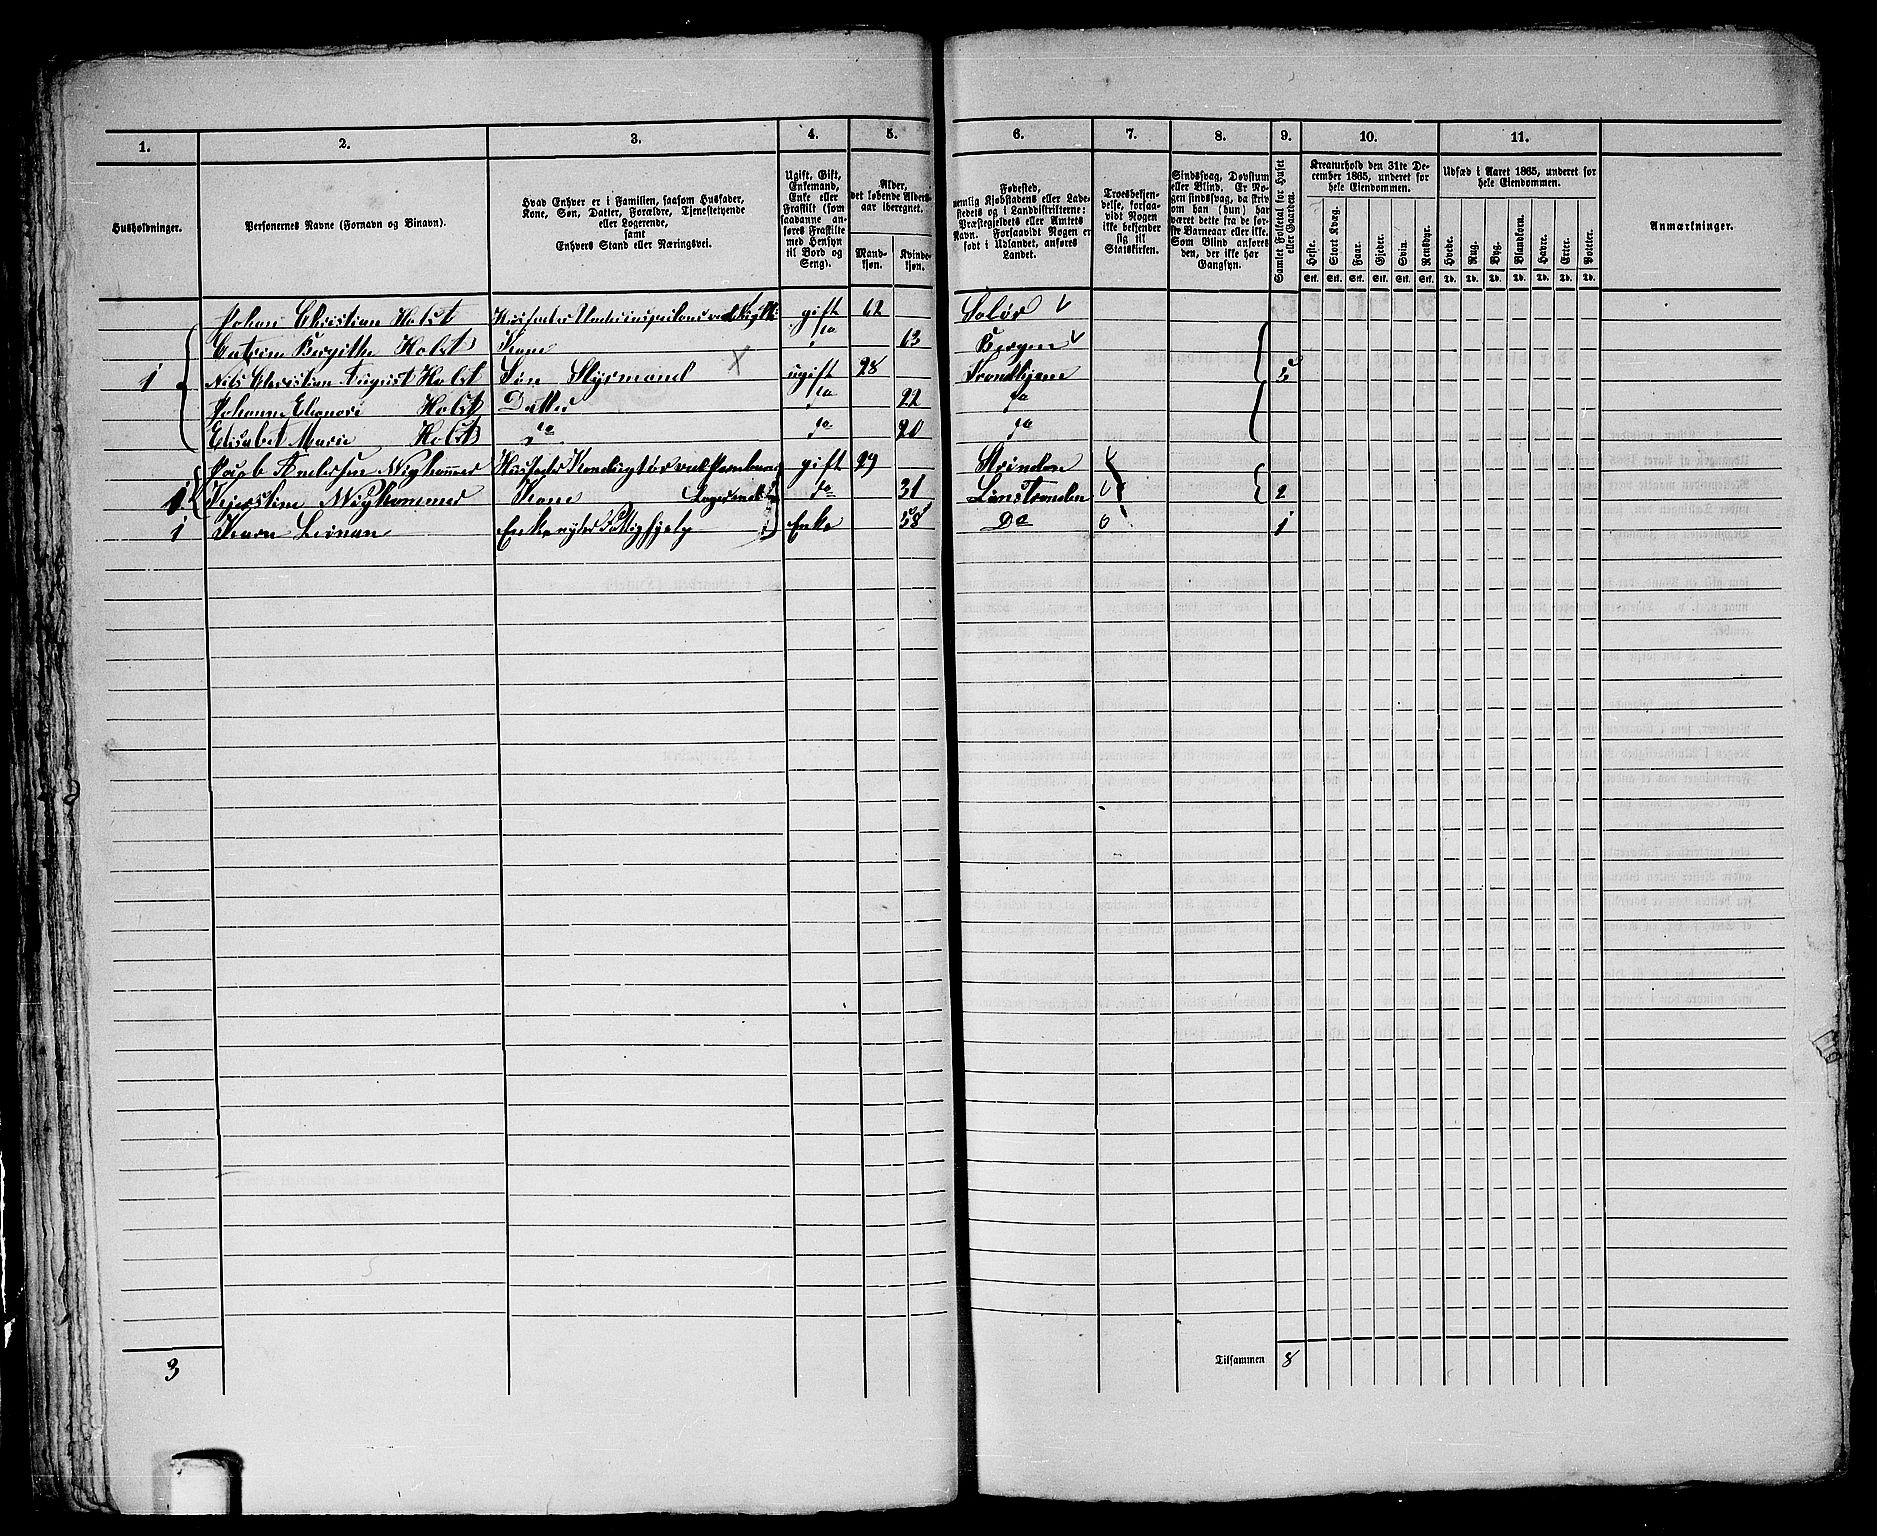 1. 2. 3. 4. 5. 6. 7. 8. 9. 10. 11.
Husholdninger.
Personernes Navne (Fornavn og Binavn).
Hvad Enhver er i Familien, saasom Husfader,
Kone, Søn, Datter, Forældre, Tjenestetyende
eller Logerende,
samt
Enhvers Stand eller Næringsvei.
Ugift, Gift,
Enkemand,
Enke eller
Fraskilt (som
saadanne an-
føres Fraskilte
med Hensyn
til Bord og
Seng).
Alder,
det løbende Alders-
aar iberegnet.
Mand-
kjøn.
Kvinde-
kjøn.
Fødested,
nemlig Kjøbstadens eller Lade-
stedets og i Landdistrikterne:
Præstegjeldets eller Amtets
Navn. Forsaavidt Nogen er
født i Udlandet, anføres
Landet.
Troesbekjen-
delse, forsaa-
vidt Nogen
ikke bekjender
sig til
Statskirken.
Sindssvag, Døvstum
eller Blind. Er No-
gen sindssvag, da skriv
om han (hun) har
været dette fra de før-
ste Barneaar eller ikke.
Som Blind anføres
den, der ikke har
Gangsyn.
Samlet Folketal for Huset
eller Gaarden.
Kreaturhold den 31te De-
cember 1865, underet for
hele Eiendommen.
Heste. Stort Kvæg. Faar. Gjeder. Svin. Rensdyr.
Stk. Stk. Stk. Stk. Stk. Stk.
Udsæd i Aaret 1865, underet for
hele Eiendommen.
Hvede. Rug. Byg. Blandkorn. Havre. Erter. Poteter.
Td. Td. Td. Td. Td. Td. Td.
Anmærkninger.
Johan Christian Holst gift 62 Solør
Catrine Bergithe Holst Kone do 63 Bergen
1 Nils Christian August Holst Søn Styrmand ugift 28 Trondhjem 5
Johanne Elenore Holst Datter do 22 do
Elisabet Marie Holst do do 20 do
Jacob Andersen Nighammer gift 29 Strinden
1 Kjerstine Nighammer Kone Logerende do 31 2
1 Karn Leinan Enke nyder Fattighjelp Enke 58 Do 1
3 Tilsammen 8